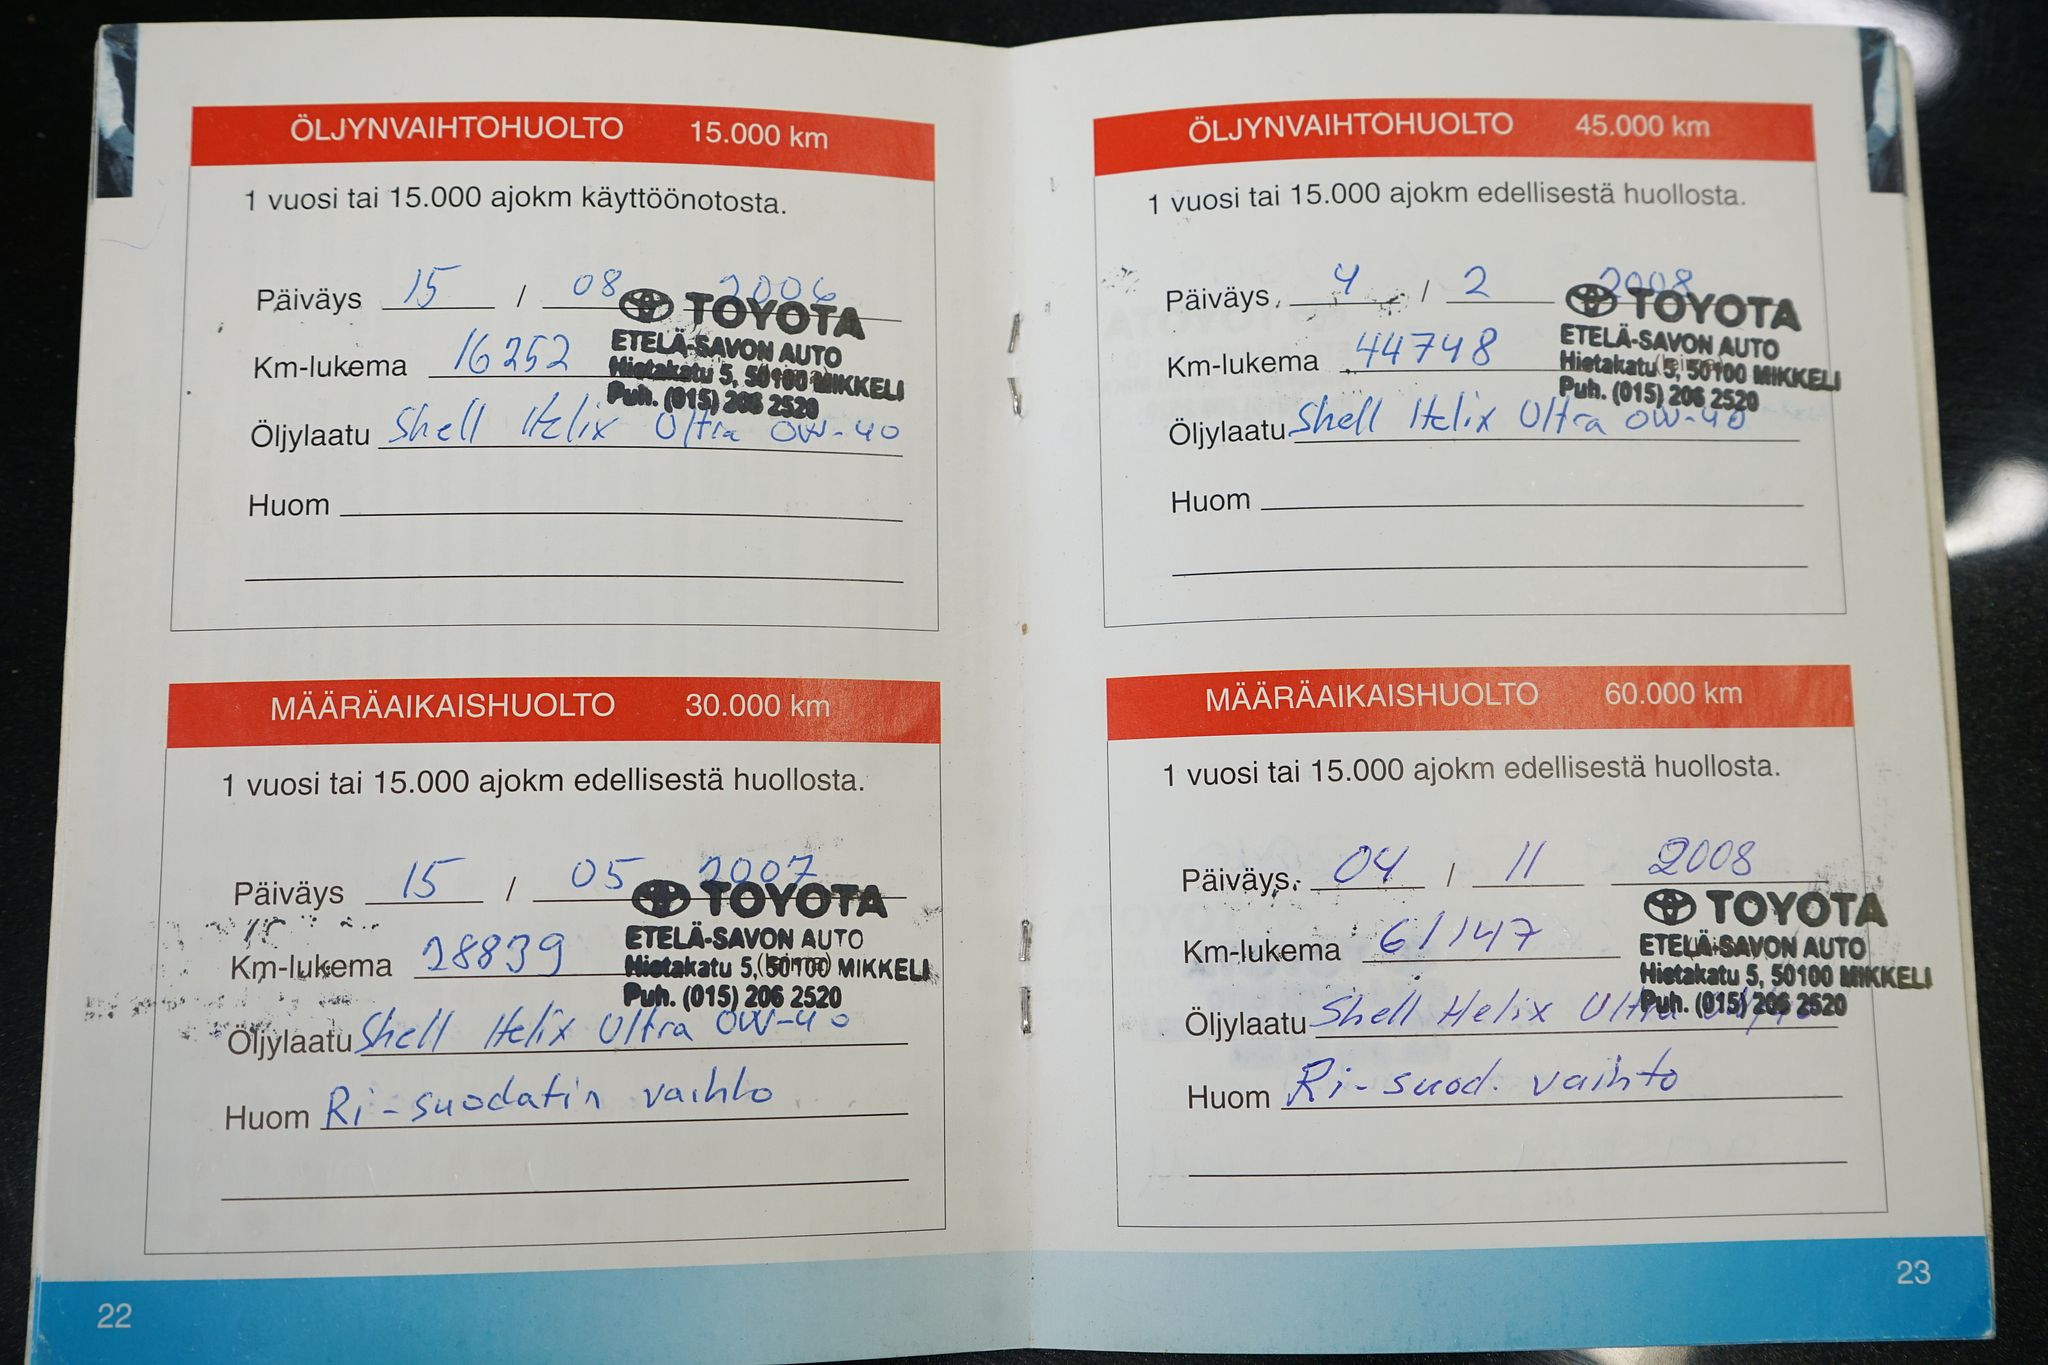 ÖLJYNVAIHTOHUOLTO 15.000 km
1 vuosi tai 15.000 ajokm käyttöönotosta.
Päiväys 15 / 08 2006
TOYOTA
ETELÄ-SAVON AUTO
Km-lukema 16252
Hietakatu 5, 50100 MIKKELI
Puh. (015) 206 2520
Öljylaatu Shell Helix Ultra 0W-40
Huom
MÄÄRÄAIKAISHUOLTO 30.000 km
1 vuosi tai 15.000 ajokm edellisestä huollosta.
Päiväys 15 / 05 2007
TOYOTA
ETELÄ-SAVON AUTO
Km-lukema 28839
Hietakatu 5, 50100 MIKKELI
Puh. (015) 206 2520
Öljylaatu Shell Helix Ultra 0W-40
Huom Ri-suodatin vaihto
22
ÖLJYNVAIHTOHUOLTO 45.000 km
1 vuosi tai 15.000 ajokm edellisestä huollosta.
Päiväys 4 / 2 2008
TOYOTA
ETELÄ-SAVON AUTO
Km-lukema 44748
Hietakatu 5, 50100 MIKKELI
Puh. (015) 206 2520
Öljylaatu Shell Helix Ultra 0W-40
Huom
MÄÄRÄAIKAISHUOLTO 60.000 km
1 vuosi tai 15.000 ajokm edellisestä huollosta.
Päiväys 04 / 11 2008
TOYOTA
ETELÄ-SAVON AUTO
Km-lukema 61147
Hietakatu 5, 50100 MIKKELI
Puh. (015) 206 2520
Öljylaatu Shell Helix Ultra
Huom Ri-suod. vaihto
23